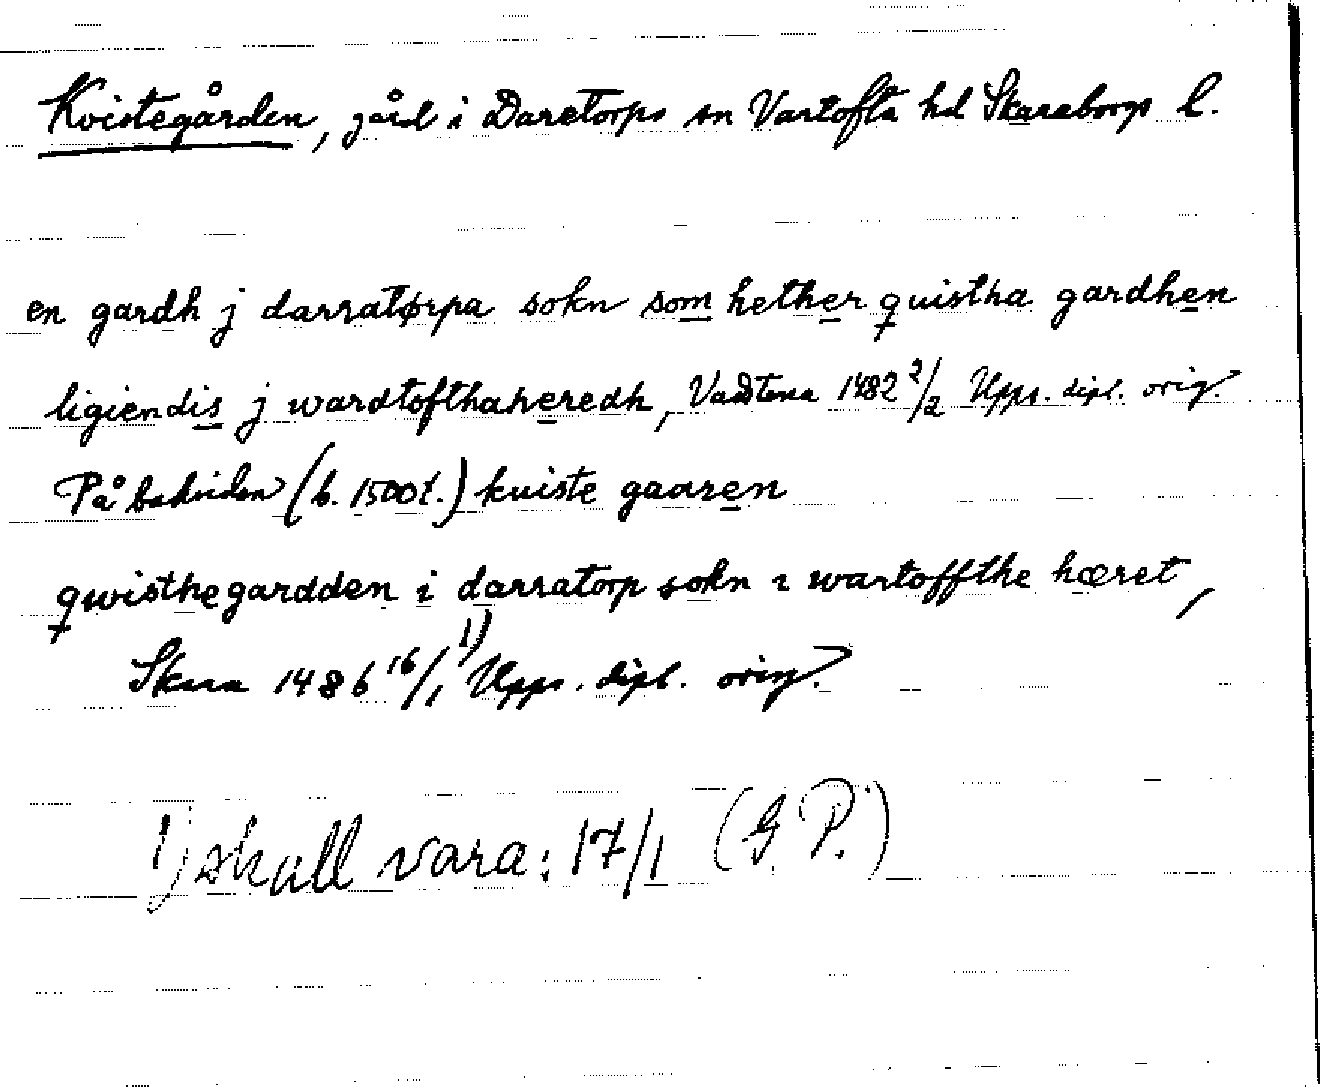 Kvistegården, gård i Daretorps sn Vartofta hd Skaraborgs l.
en gardh j darratørpa sokn som hether quistha gardhen
ligiendis j wardtofthaheredh, Vadstena 1482 2/2 Upps. dipl. orig.
På baksidan (b. 1500t.) kuiste gaaren
qwisthegardden i darratorp sokn i wartoffthe hæret,
Skara 1486 16/1 1) Upps. dipl. orig.
1) skall vara: 17/1 (G.P.)